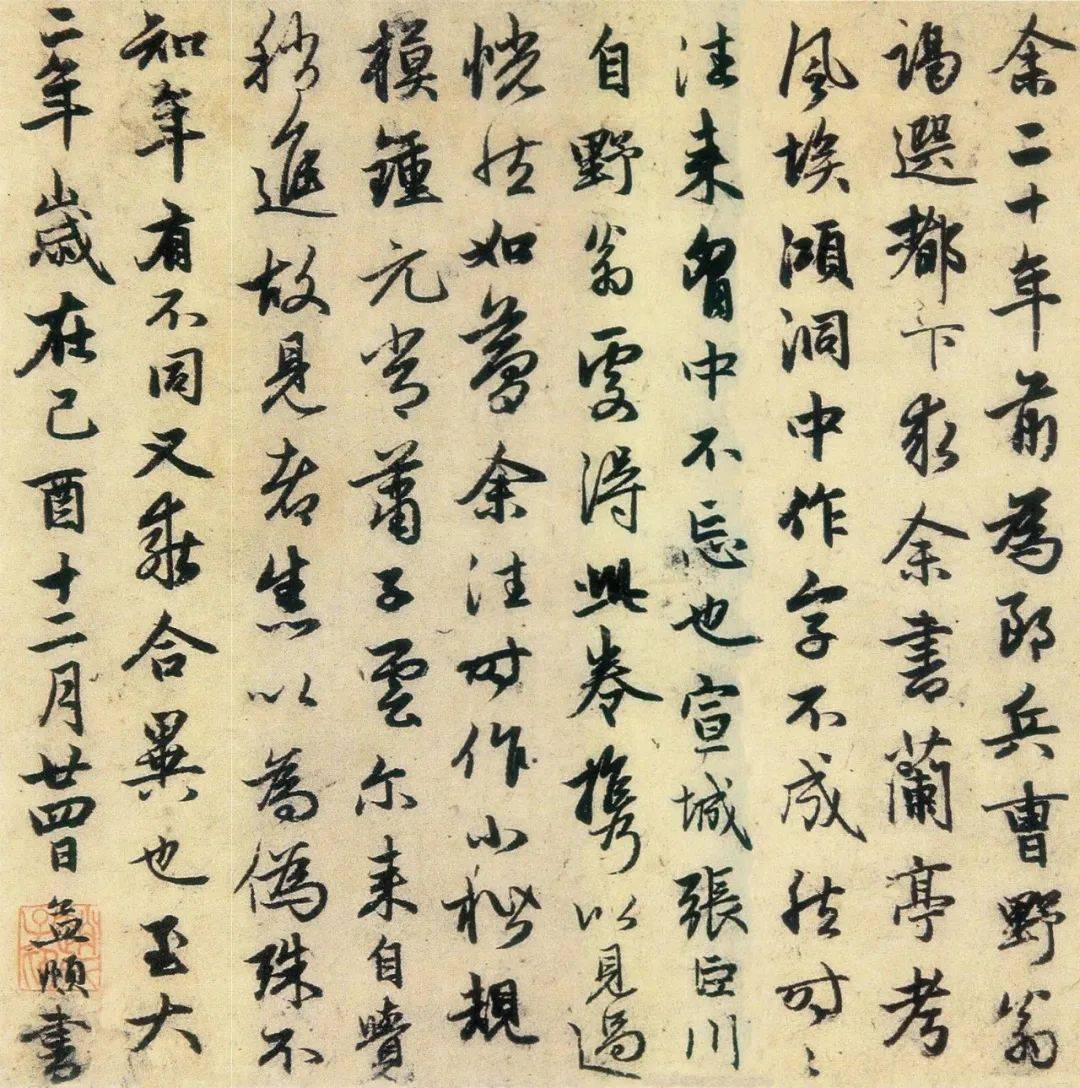 余二十年前為郎兵曹野翁
謁選都下求余書蘭亭考
風埃澒洞中作字不成然時〻
往来胷中不忘也宣城張巨川
自野翁處得此卷攜以見過
恍然如夢余往時作小楷規
模鍾元常蕭子雲尔来自覺
稍進故見者悉以為偽殊不
知年有不同又乖合異也至大
二年歲在己酉十二月廿四日孟頫書